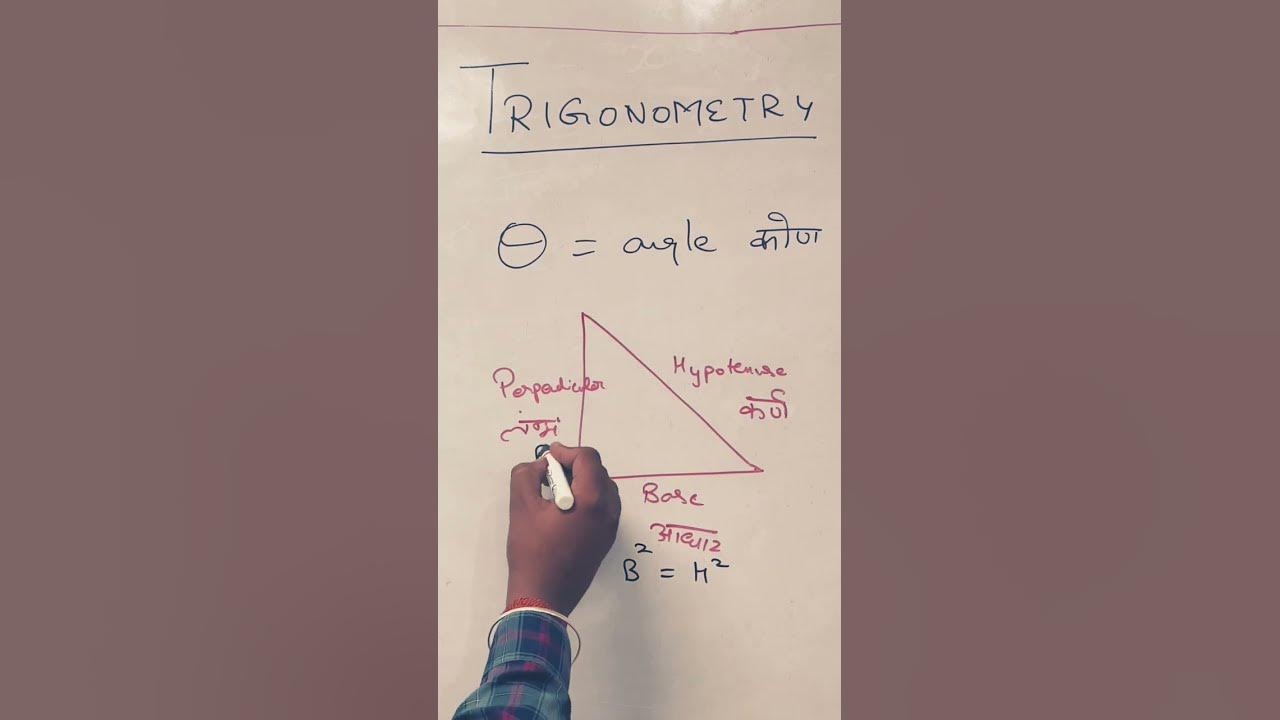 TRIGONOMETRY
θ = angle कोण
Perpendicular
Hypotenuse
कर्ण
Base
आधार
B² = H²